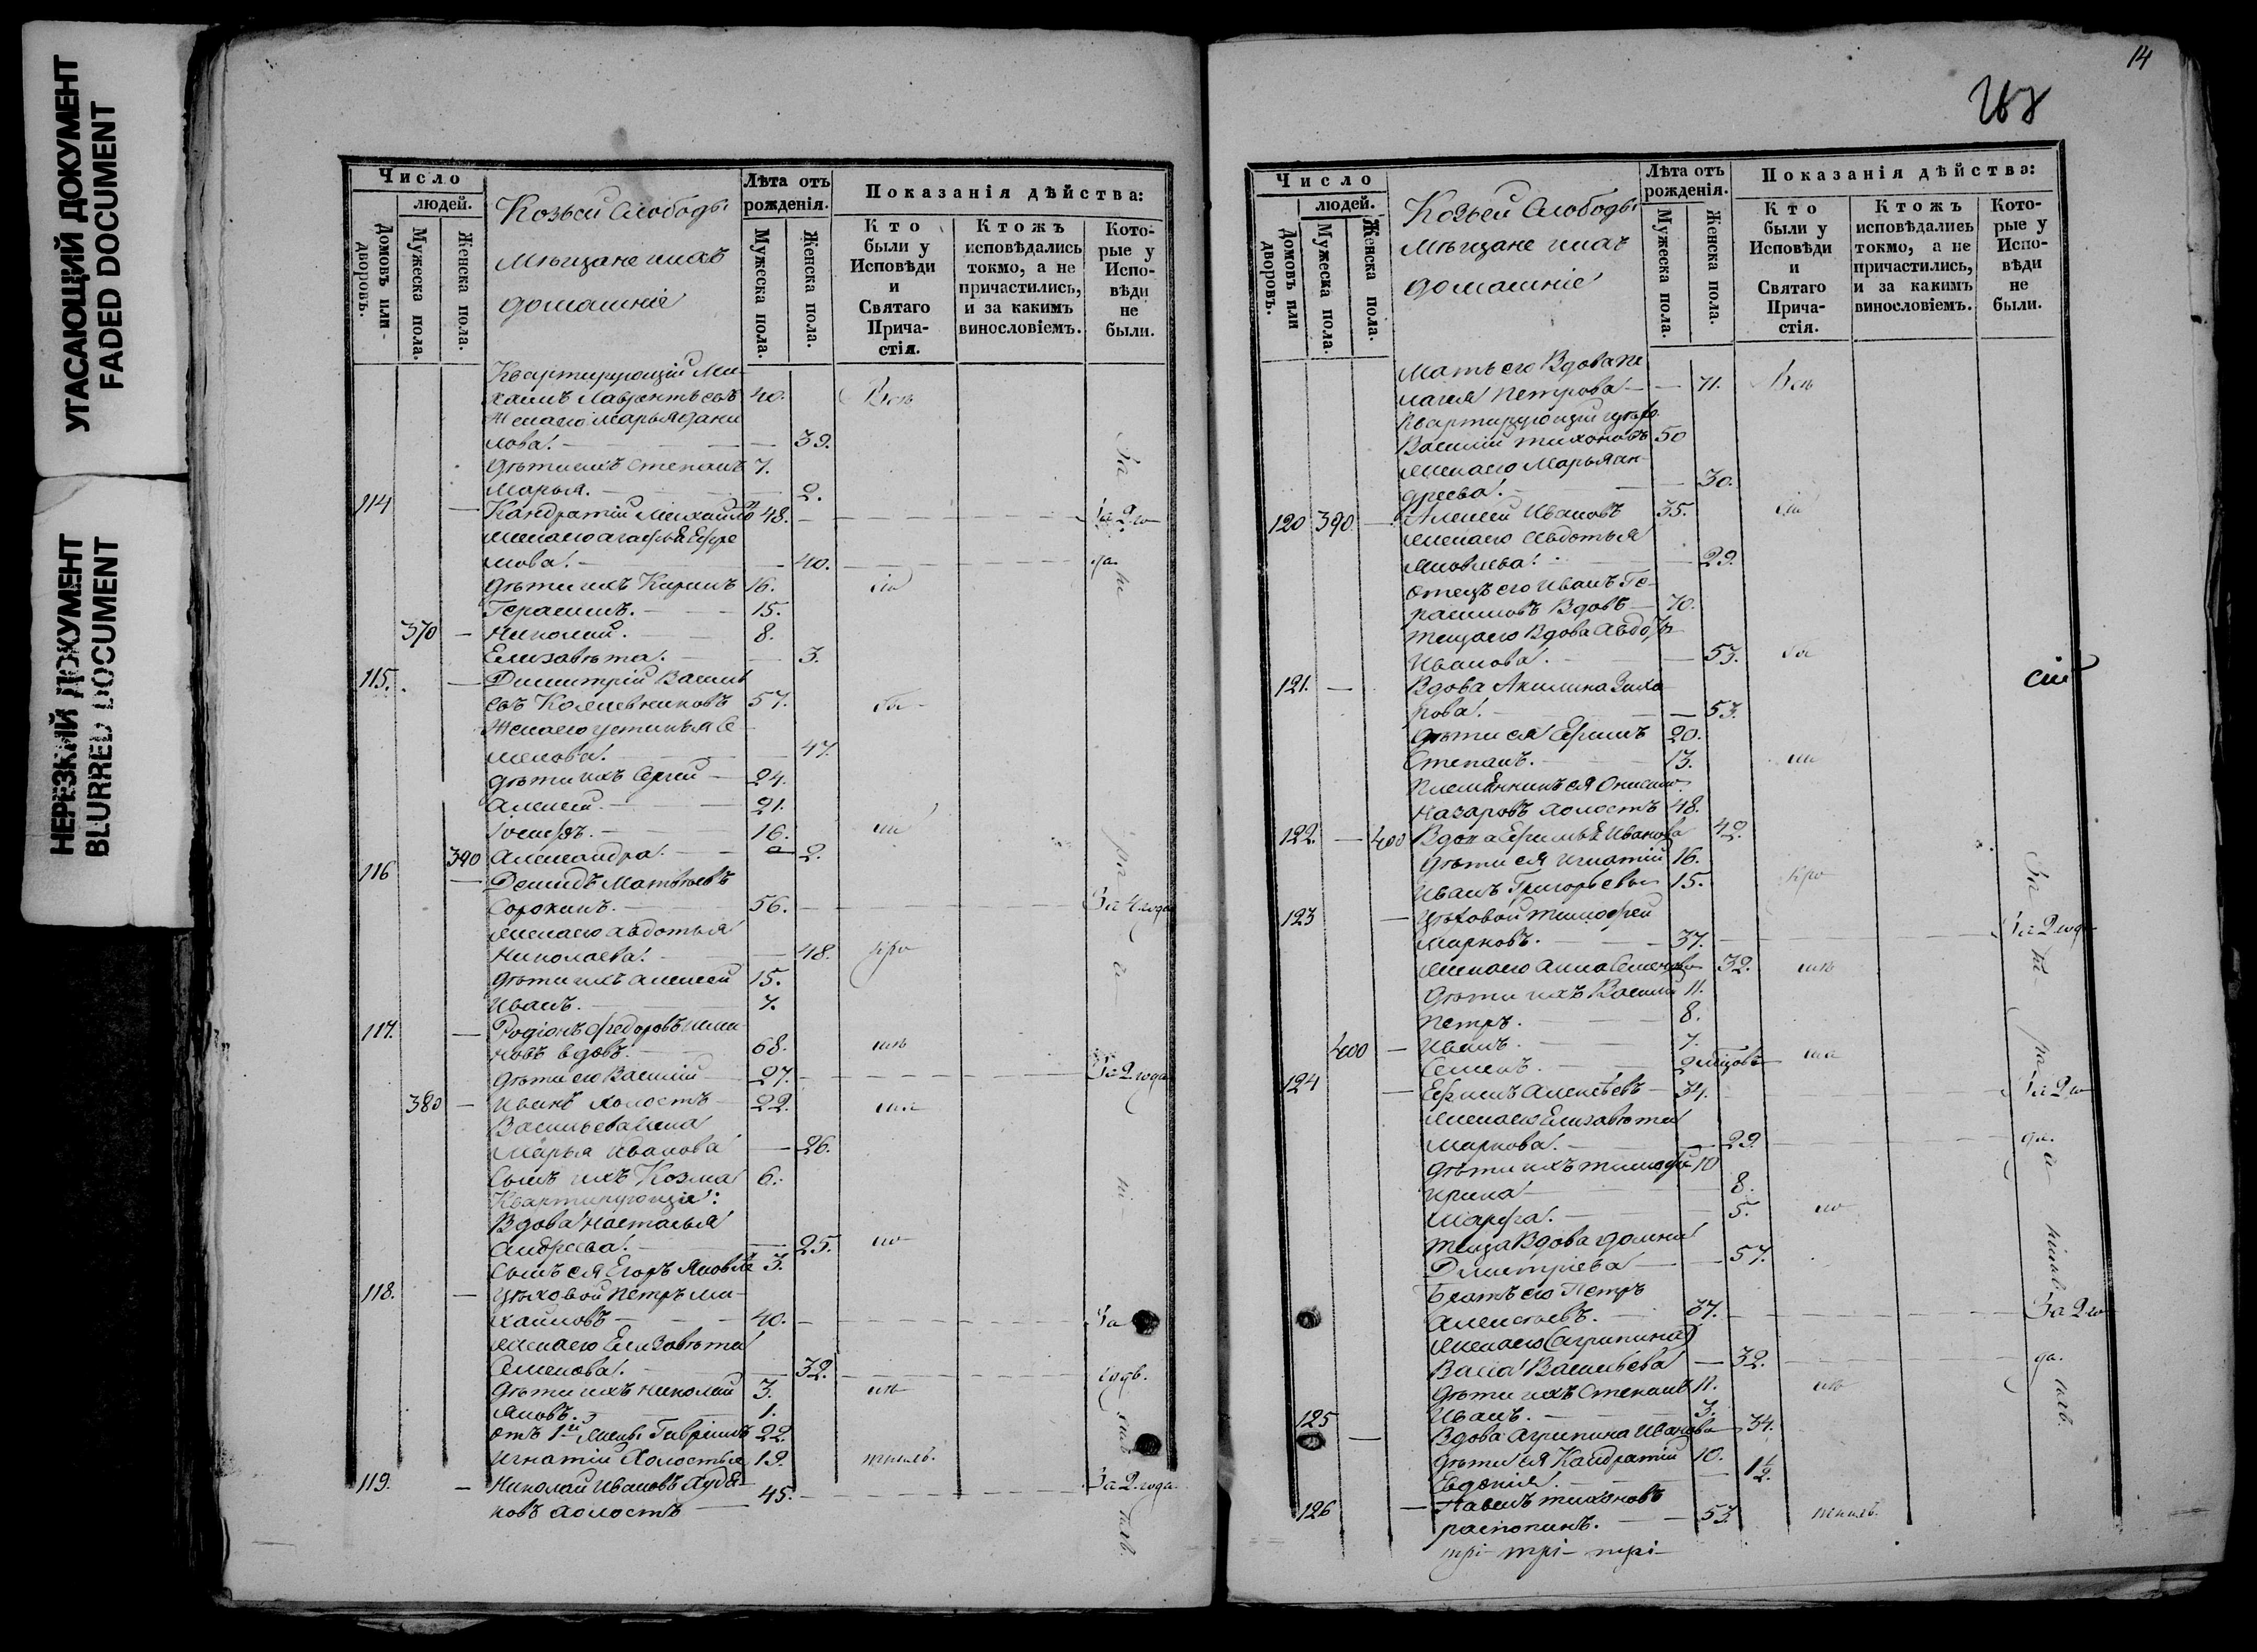 УГАСАЮЩИЙ ДОКУМЕНТ
FADED DOCUMENT
НЕРЕЗКИЙ ДОКУМЕНТ
BLURRED DOCUMENT
Число
людей.
Домовъ или дворовъ.
Мужеска пола.
Женска пола.
Козьей Слободы
мѣщане ихъ
домашніе
Лѣта отъ рожденія.
Мужеска пола.
Женска пола.
Показанія дѣйства:
Кто были у Исповѣди и Святаго Причастія.
Ктожъ исповѣдались токмо, а не причастились, и за какимъ винословіемъ.
Которые у Исповѣди не были.
Квартирующій Ми
хаилъ Лаврентьевъ 40. Всѣ
Жена его Марья Дани
лова. — 39.
Дѣти ихъ Степанъ 7.
Марья. — 2.
114 — Кандратій Михайло 48. — За 2 го
Жена его Агафья Ефре
мова. — 40. — да
Дѣти ихъ Карпъ 16.
Герасимъ. — 15.
370 — Николай. — 8.
Елизавѣта. — 3.
115. — Димитрій Василь
евъ Кожевниковъ 57.
Жена его Устинья Се
менова. — 47.
Дѣти ихъ Сергій — 24.
Алексей. — 21.
Іосифъ. — 16.
390 Александра. — 2.
116 — Демидъ Матвѣевъ
Сорокинъ. — 56. — За 4 года
Жена его Авдотья
Николаева. — 48.
Дѣти ихъ Алексей 15.
Иванъ. — 7.
117. — Родіонъ Федоровъ
новъ вдовъ. — 68.
Дѣти его Василій — 27. — За 2 года
380 — Иванъ холостъ — 22.
Васильева жена
Марья Иванова — 26.
Сынъ ихъ Козма 6.
Квартирующіе:
Вдова Настасья
Андреева. — 25.
Сынъ ея Егоръ Яковлев 3.
118. — Цѣховой Петръ Ми-
хайловъ — 40. — За
Жена его Елизавѣта
Семенова. — 32. — годъ.
Дѣти ихъ Николай 3.
Яковъ. — 1.
отъ 1й жены Гаврилъ 22.
Игнатій Холостые 19.
119. — Николай Ивановъ Худя-
ковъ холостъ — 45. — За 2 года
14
Число
людей.
Домовъ или дворовъ.
Мужеска пола.
Женска пола.
Козьей Слободы
мѣщане ихъ
домашніе
Лѣта отъ рожденія.
Мужеска пола.
Женска пола.
Показанія дѣйства:
Кто были у Исповѣди и Святаго Причастія.
Ктожъ исповѣдались токмо, а не причастились, и за какимъ винословіемъ.
Которые у Исповѣди не были.
Мать его Вдова Пе
лагея Петрова — 71. Всѣ
Квартирующій цѣхо
Василій Тихоновъ 50
Жена его Марья Ан-
дреева. — 30.
120 390. — Алексей Ивановъ 35.
Жена его Авдотья
Яковлева. — 29.
Отецъ его Иванъ Ге-
расимовъ Вдовъ — 70.
Теща его Вдова Авдотья
Иванова. — 53.
121. — Вдова Акилина Заха
рова. — 53.
Дѣти ея Ефимъ 20.
Степанъ. — 13.
Племянникъ ея Онисим
Назаровъ холостъ 48.
122. — 400 Вдова Ефимья Иванова 42.
Дѣти ея Игнатій 16.
Иванъ Григорьевы 15.
123 — Цѣховой Тимофей
Марковъ. — 37. — За 2 года
Жена его Анна Семенова 32.
Дѣти ихъ Василій 11.
Петръ. — 8.
400 — Иванъ. — 7.
Семенъ. —
124 — Ефимъ Алексѣевъ — 34. — За 2 го
Жена его Елизавѣта
Маркова. — 29. — да.
Дѣти ихъ Тимофей 10
Ирина — 8.
Марфа. — 5.
Теща Вдова Домна
Дмитріева — 57.
Братъ его Петръ
Алексѣевъ. — 37. — За 2 го
Жена его (Агрипина)
Васса Васильева — 32. — да.
Дѣти ихъ Степанъ 11.
Иванъ. — 3.
125 — Вдова Агрипина Иванова 34.
Дѣти ея Кандратій 10.
Евдокія. — 1½
126 — Павелъ Тихоновъ
распопинъ. — 53.
три — три — три —